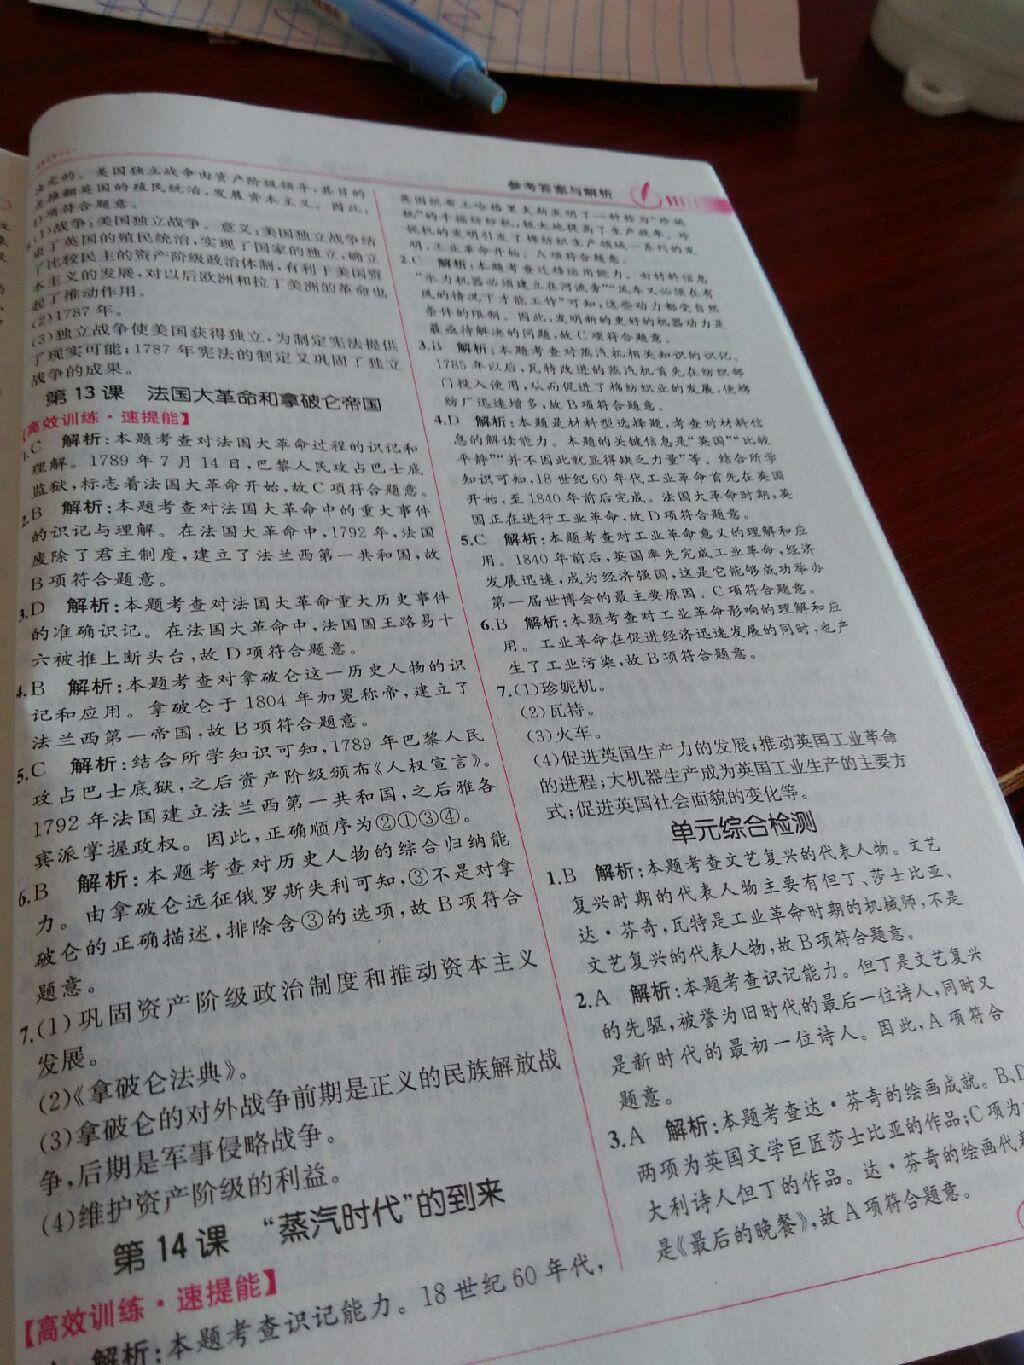 参考答案与解析
决定的。美国独立战争由资产阶级领导,其目的
是推翻英国的殖民统治,发展资本主义。因此,
项符合题意。
(1)战争:美国独立战争。意义:美国独立战争结
束了英国的殖民统治,实现了国家的独立,确立
了比较民主的资产阶级政治体制,有利于美国资
本主义的发展,对以后欧洲和拉丁美洲的革命也
起了推动作用。
(2)1787年。
(3)独立战争使美国获得独立,为制定宪法提供
了现实可能;1787年宪法的制定又巩固了独立
战争的成果。
第13课 法国大革命和拿破仑帝国
【高效训练·速提能】
1.C 解析:本题考查对法国大革命过程的识记和
理解。1789年7月14日,巴黎人民攻占巴士底
监狱,标志着法国大革命开始,故C项符合题意。
2.B 解析:本题考查对法国大革命中的重大事件
的识记与理解。在法国大革命中,1792年,法国
废除了君主制度,建立了法兰西第一共和国,故
B项符合题意。
3.D 解析:本题考查对法国大革命重大历史事件
的准确识记。在法国大革命中,法国国王路易十
六被推上断头台,故D项符合题意。
4.B 解析:本题考查对拿破仑这一历史人物的识
记和应用。拿破仑于1804年加冕称帝,建立了
法兰西第一帝国,故B项符合题意。
5.C 解析:结合所学知识可知,1789年巴黎人民
攻占巴士底狱,之后资产阶级颁布《人权宣言》。
1792年法国建立法兰西第一共和国,之后雅各
宾派掌握政权。因此,正确顺序为②①③④。
6.B 解析:本题考查对历史人物的综合归纳能
力。由拿破仑远征俄罗斯失利可知,③不是对拿
破仑的正确描述,排除含③的选项,故B项符合
题意。
7.(1)巩固资产阶级政治制度和推动资本主义
发展。
(2)《拿破仑法典》。
(3)拿破仑的对外战争前期是正义的民族解放战
争,后期是军事侵略战争。
(4)维护资产阶级的利益。
第14课 “蒸汽时代”的到来
【高效训练·速提能】
解析:本题考查识记能力。18世纪60年代,
英国织布工哈格里夫斯发明了一种称为“珍妮
机”的手摇纺纱机,极大地提高了生产效率。珍
妮机的发明引发了棉纺织生产领域一系列的发
明,工业革命开始。A项符合题意。
2.C 解析:本题考查迁移运用能力。由材料信息
“水力机器必须建立在河流旁”“风车又必须在有
风的情况下才能工作”可知,这些动力都受自然
条件的限制。因此,发明新的更好的机器动力是
最亟待解决的问题,故C项符合题意。
3.B 解析:本题考查对蒸汽机相关知识的识记。
1785年以后,瓦特改进的蒸汽机首先在纺织部
门投入使用,从而促进了棉纺织业的发展,使棉
纺厂迅速增多,故B项符合题意。
4.D 解析:本题是材料型选择题,考查对材料信
息的解读能力。本题的关键信息是“英国”“比较
平静”“并不因此就显得缺乏力量”等。结合所学
知识可知,18世纪60年代工业革命首先在英国
开始,至1840年前后完成。法国大革命时期,英
国正在进行工业革命,故D项符合题意。
5.C 解析:本题考查对工业革命意义的理解和应
用。1840年前后,英国率先完成工业革命,经济
发展迅速,成为经济强国,这是它能够成功举办
第一届世博会的最主要原因。C项符合题意。
6.B 解析:本题考查对工业革命影响的理解和应
用。工业革命在促进经济迅速发展的同时,也产
生了工业污染,故B项符合题意。
7.(1)珍妮机。
(2)瓦特。
(3)火车。
(4)促进英国生产力的发展;推动英国工业革命
的进程;大机器生产成为英国工业生产的主要方
式;促进英国社会面貌的变化等。
单元综合检测
1.B 解析:本题考查文艺复兴的代表人物。文艺
复兴时期的代表人物主要有但丁、莎士比亚、
达·芬奇,瓦特是工业革命时期的机械师,不是
文艺复兴的代表人物,故B项符合题意。
2.A 解析:本题考查识记能力。但丁是文艺复兴
的先驱,被誉为旧时代的最后一位诗人,同时又
是新时代的最初一位诗人。因此,A项符合
题意。
3.A 解析:本题考查达·芬奇的绘画成就。B、D
两项为英国文学巨匠莎士比亚的作品;C项为
大利诗人但丁的作品。达·芬奇的绘画代表
是《最后的晚餐》,故A项符合题意。